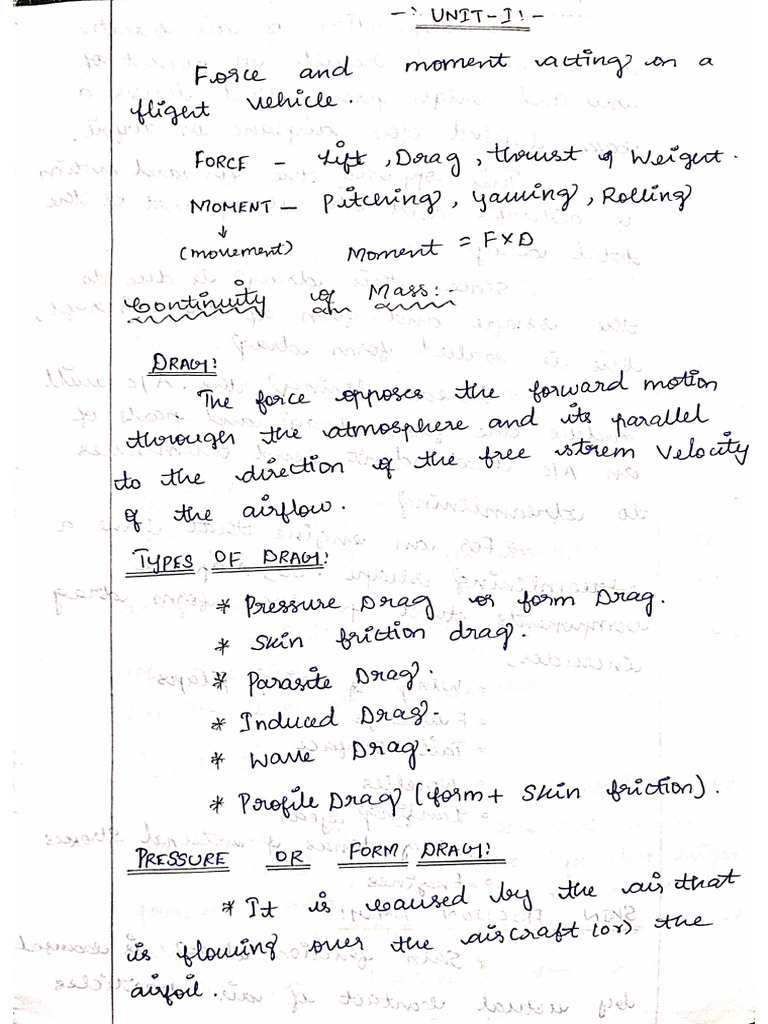 -: UNIT-I: -
Force and moment acting on a
flight vehicle
FORCE - Lift, Drag, thrust & Weight.
MOMENT - Pitchering, yawing, Rolling
↓
(movement) Moment = F×D
Continuity of Mass:-
DRAG:
The force opposes the forward motion
through the atmosphere and its parallel
to the direction of the free strem Velocity
of the airflow.
TYPES OF DRAG:
* Pressure Drag or form Drag.
* Skin friction drag.
* Parasite Drag.
* Induced Drag.
* Wave Drag.
* Profile Drag (form + Skin friction).
PRESSURE OR FORM DRAG:
* It is caused by the air that
is flowing over the aircraft (or) the
airfoil.